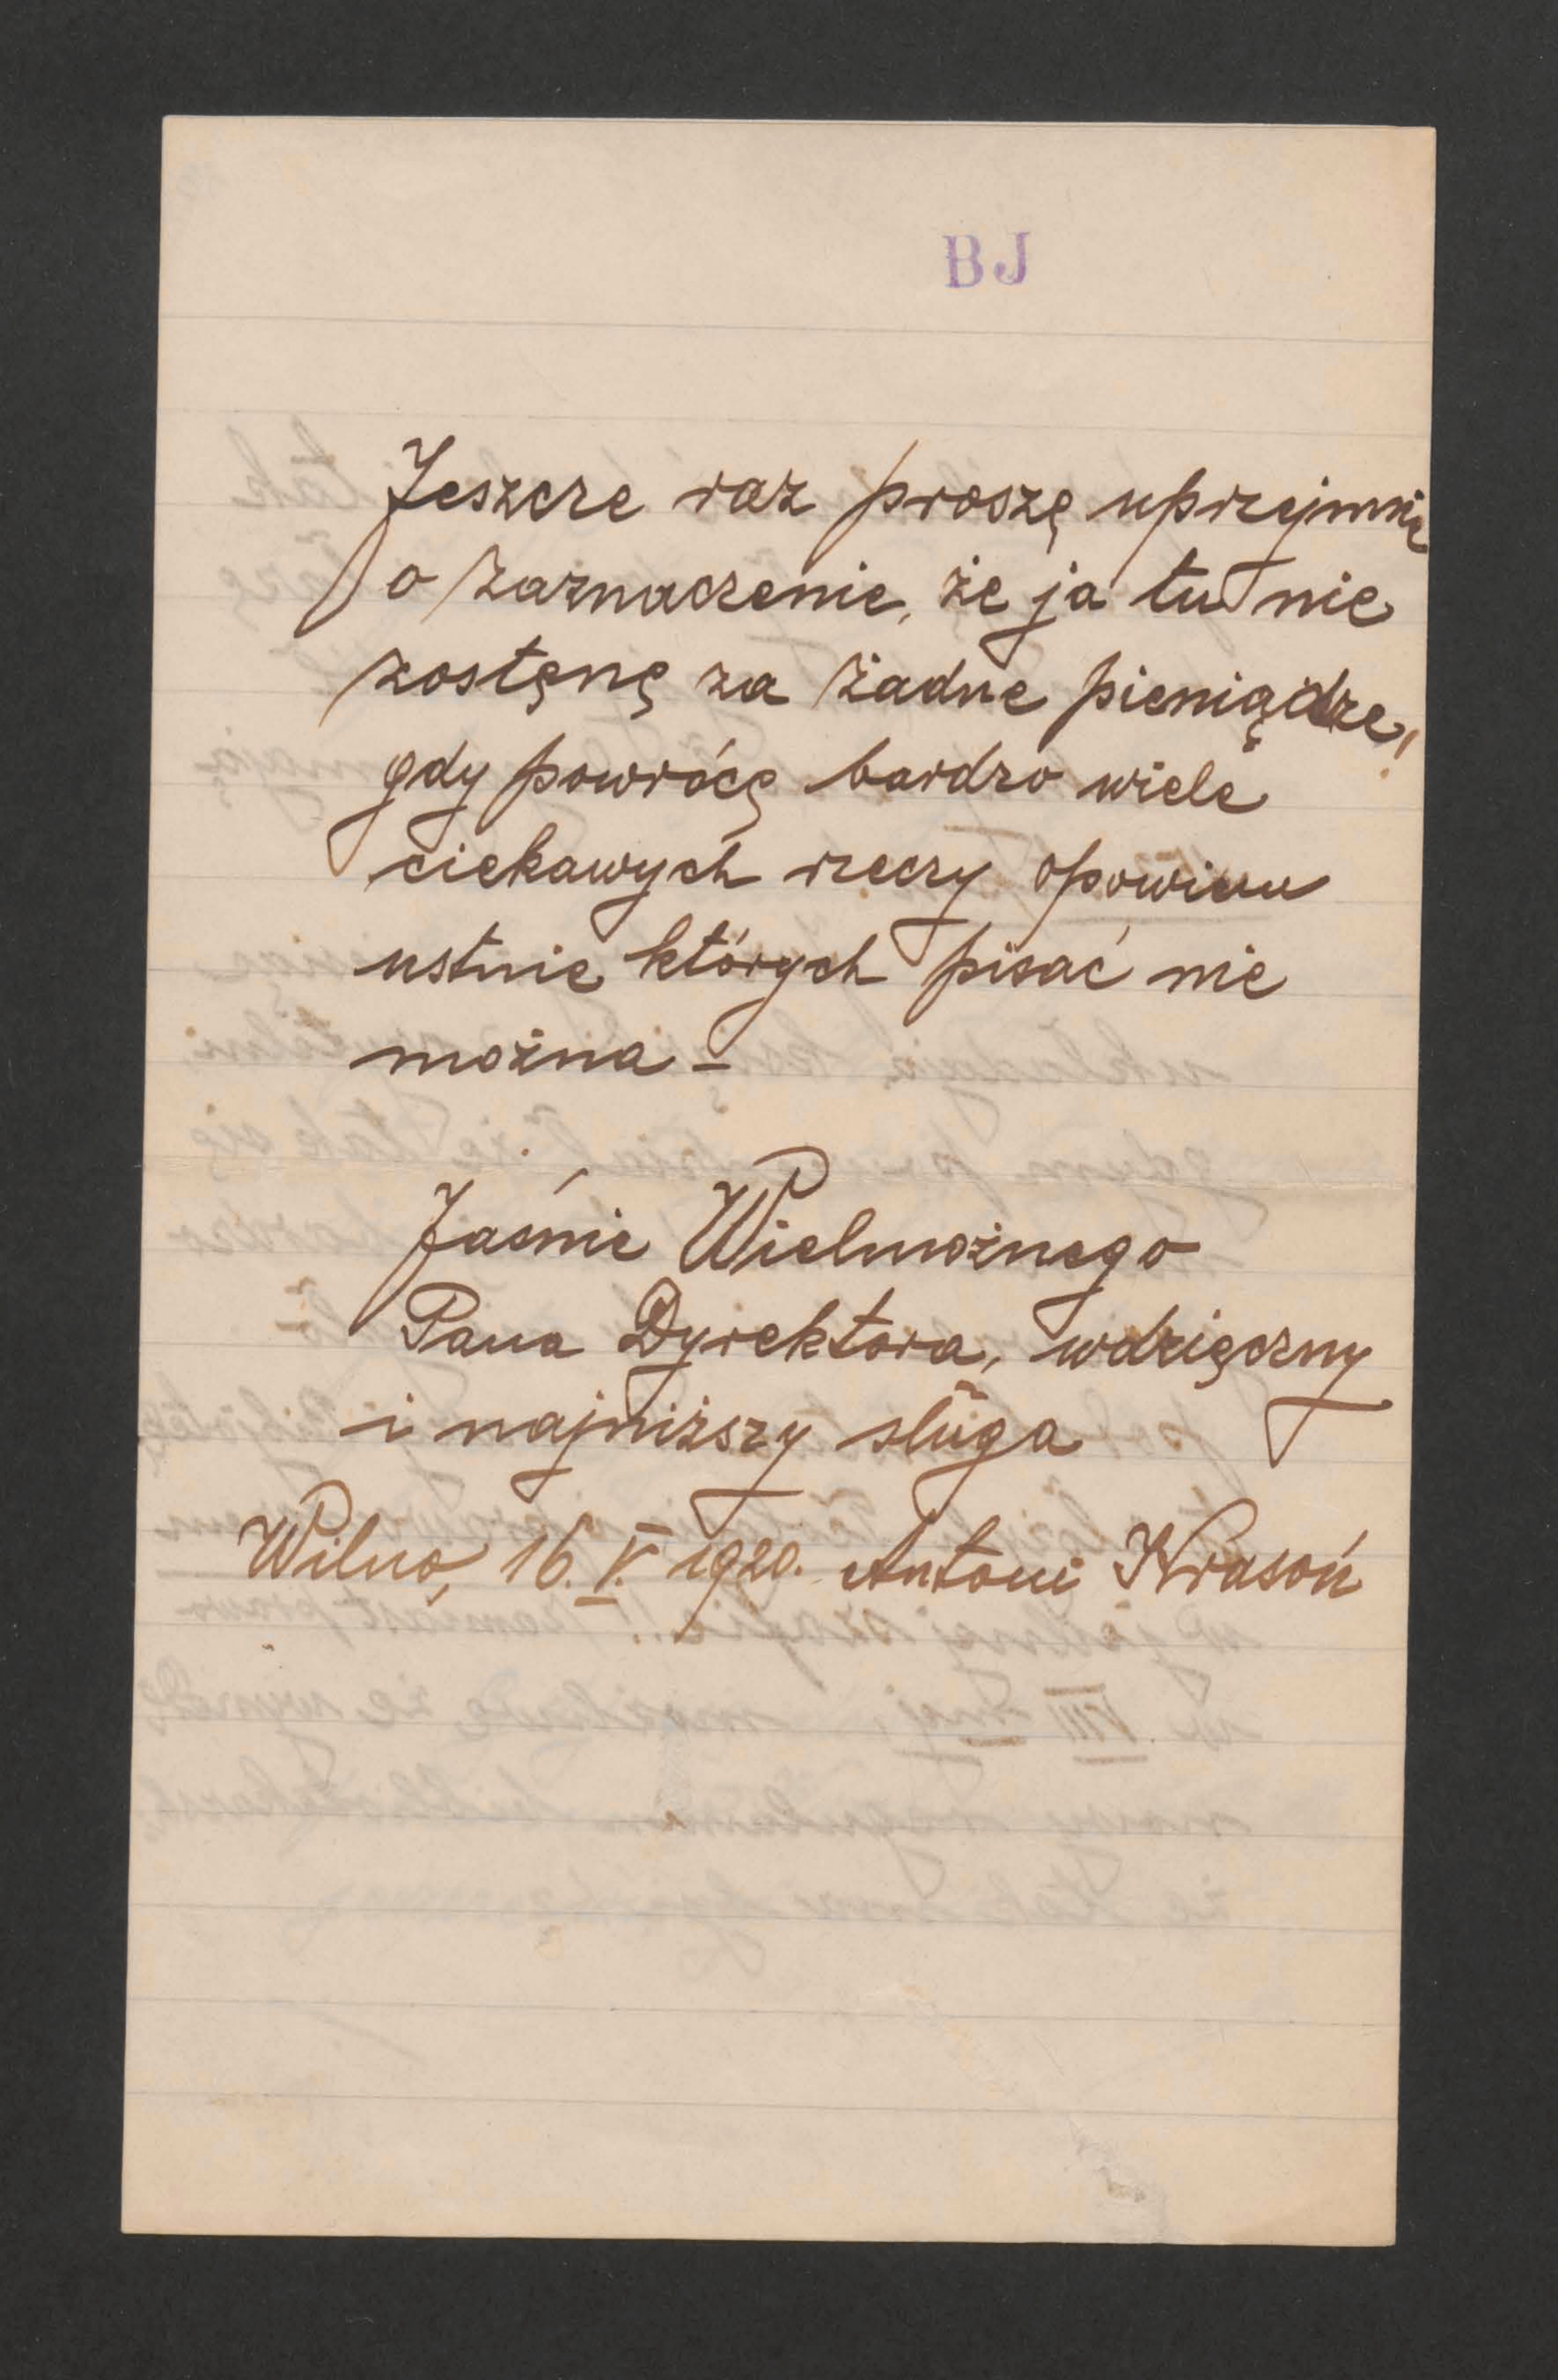 BJ
Jeszcze raz proszę uprzejmie
o zaznaczenie, że ja tu nie
zostęnę za żadne pieniądze,
gdy powrócę bardzo wiele
ciekawych rzeczy opowiem
ustnie których pisać nie
można –
Jaśnie Wielmożnego
Pana Dyrektora, wdzięczny
i najniższy sługa
Wilno, 16. V. 1920. Antoni Krasoń